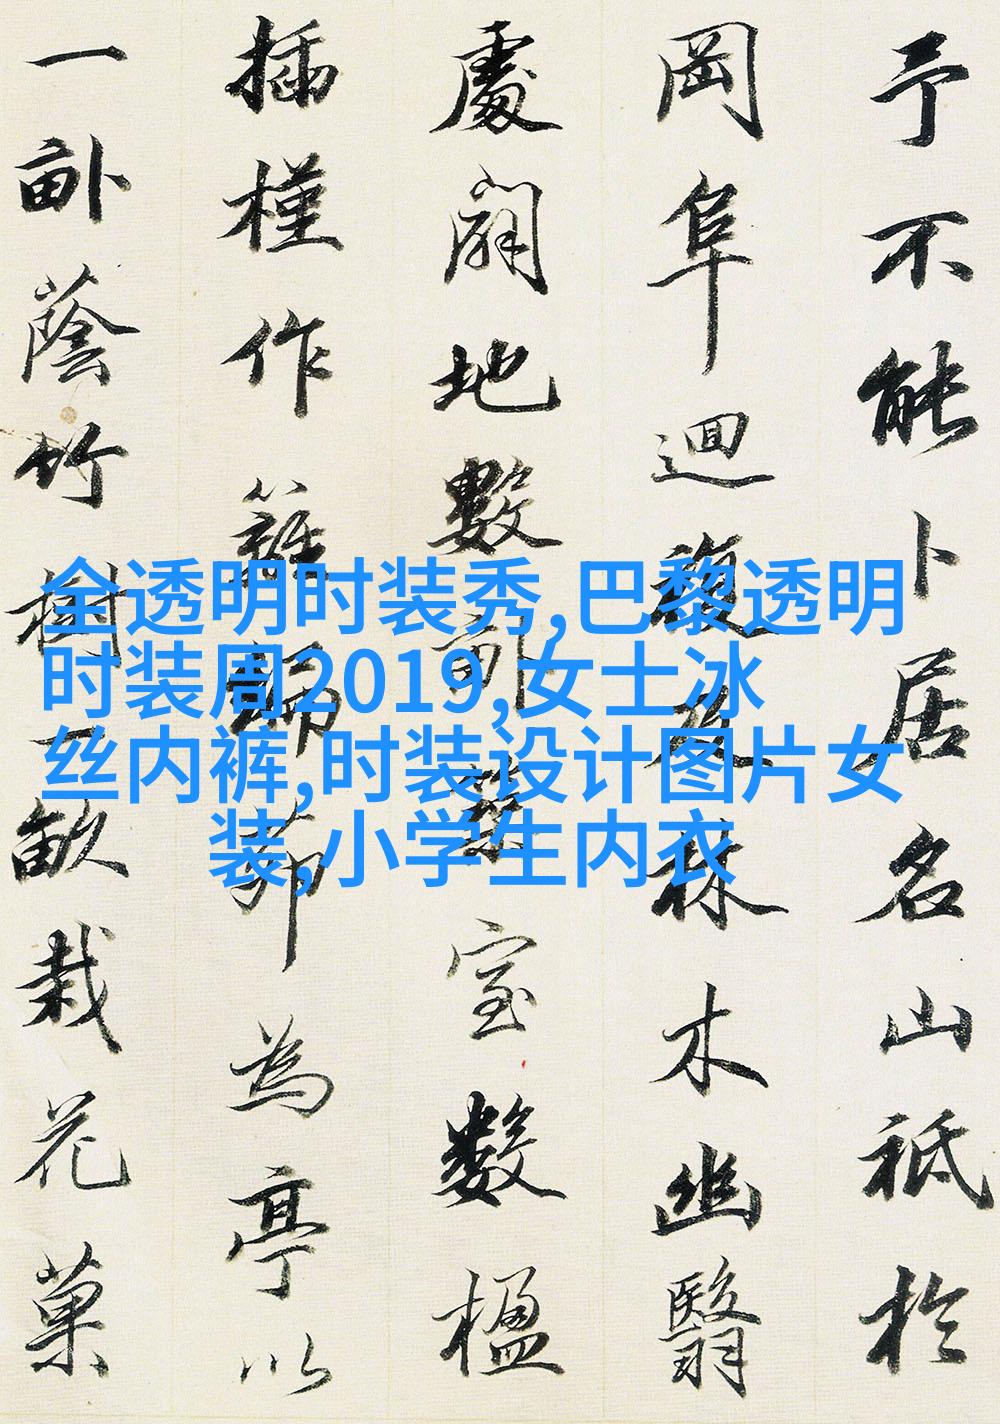 予不能卜居名山祗於
岡阜迴複及林木幽翳
處闢地數畝築室數楹
插槿作籬編茆為亭以
一畝蔭竹樹一畝栽花菓
全透明时装秀,巴黎透明
时装周2019,女士冰
丝内裤,时装设计图片女
装,小学生内衣